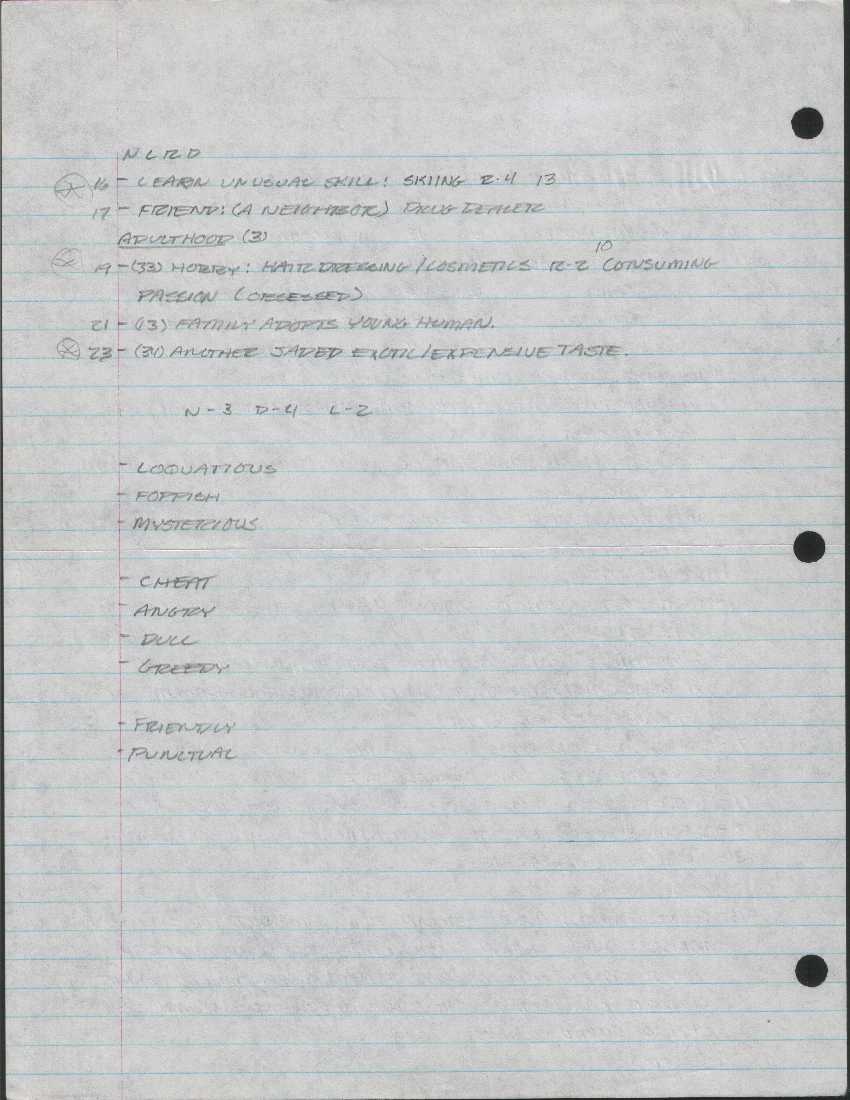 N L R D
16 - LEARN UNUSUAL SKILL: SKIING R-4 13
17 - FRIEND: (A NEIGHBOR) DRUG DEALER
ADULTHOOD (3)
19 - (33) HOBBY: HAIRDRESSING/COSMETICS R-2 10 CONSUMING
PASSION (OBSESSED)
21 - (13) FAMILY ADOPTS YOUNG HUMAN.
23 - (31) ANOTHER JADED EXOTIC/EXPENSIVE TASTE.
N-3 D-4 L-2
- LOQUATIOUS
- FOPPISH
- MYSTERIOUS
- CHEAT
- ANGRY
- DULL
- GREEDY
- FRIENDLY
- PUNCTUAL